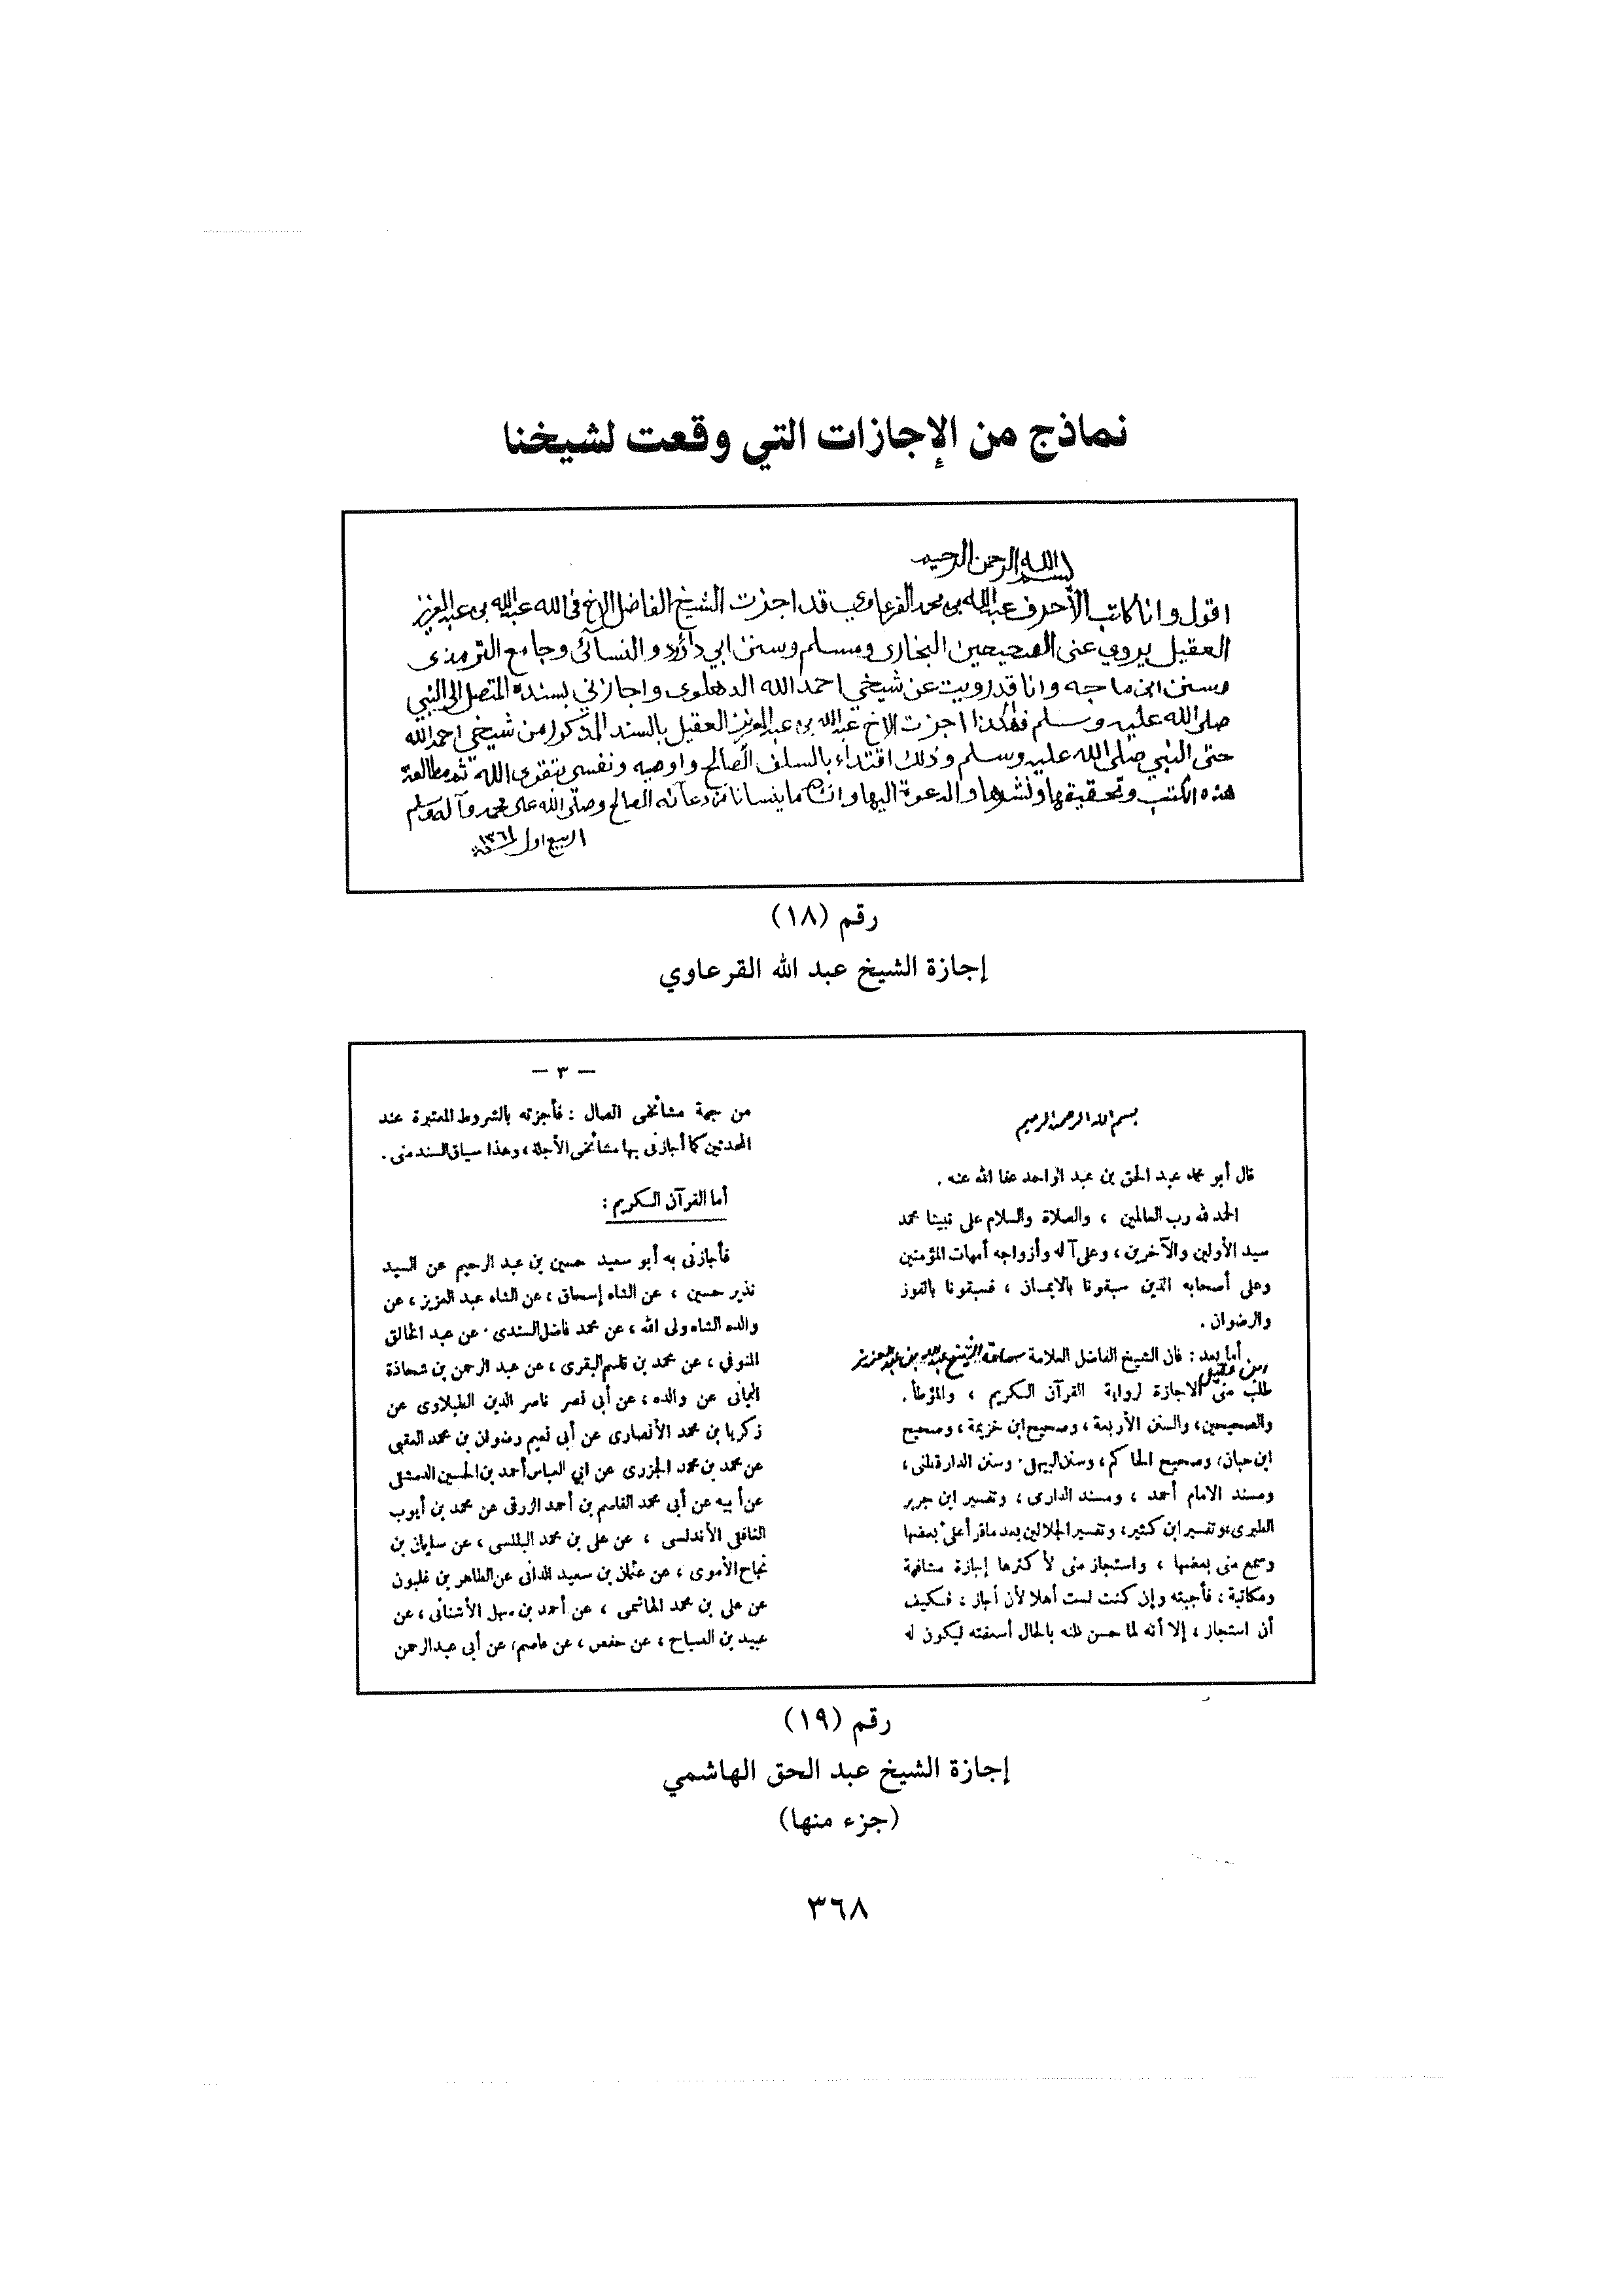 نماذج من الإجازات التي وقعت لشيخنا
بسم الله الرحمن الرحيم
اقول وانا كاتب الأحرف عبدالله بن محمد القرعاوي قد اجزت الشيخ الفاضل الاخ في الله عبدالله بن عبدالعزيز
العقيل يروي عني الصحيحين البخاري ومسلم وسنن ابي داؤد والنسائي وجامع الترمذي
وسنن ابن ماجه وانا قد رويت عن شيخي احمد الله الدهلوي واجازني بسنده المتصل الى النبي
صلى الله عليه وسلم فهكذا اجزت الاخ عبدالله بن عبدالعزيز العقيل بالسند المذكور من شيخي احمد الله
حتى النبي صلى الله عليه وسلم وذلك اقتداء بالسلف الصالح واوصيه ونفسي بتقوى الله ثم مطالعة
هذه الكتب وتحقيقها ونشرها والدعوة اليها وان لا ينسانا من دعائه الصالح وصلى الله على محمد وآله وسلم
ربيع اول ١٣٦١
رقم (١٨)
إجازة الشيخ عبد الله القرعاوي
بسم الله الرحمن الرحيم
قال أبو محمد عبد الحق بن عبد الواحد عفا الله عنه .
الحمد لله رب العالمين ، والصلاة والسلام على نبينا محمد
سيد الأولين والآخرين ، وعلى آله وأزواجه أمهات المؤمنين
وعلى أصحابه الذين سبقونا بالايمان ، فسبقونا بالفوز
والرضوان .
أما بعد : فان الشيخ الفاضل العلامة سماحة الشيخ عبدالله بن عبدالعزيز
ابن عقيل
طلب منى الاجازة لرواية القرآن الكريم ، والموطأ .
والصحيحين ، والسنن الأربعة ، وصحيح ابن خزيمة ، وصحيح
ابن حبان ، وصحيح الحاكم ، وسنن البيهقى . وسنن الدارقطنى ،
ومسند الامام أحمد ، ومسند الدارى ، وتفسير ابن جرير
الطبرى ، وتفسير ابن كثير ، وتفسير الجلالين بعد ما قرأ على بعضها
وسمع منى بعضها ، واستجاز منى لأكثرها إجازة مشافهة
ومكاتبة ، فأجبته وإن كنت لست أهلا لأن أجاز ، فكيف
أن استجاز ، إلا أنه لما حسن ظنه بالحال أسعفته ليكون له
— ٣ —
من جهة مشائخى اتصال : فأجزته بالشروط المعتبرة عند
المحدثين كما أجازنى بها مشائخى الأجلة ، وهذا سياق السند منى .
أما القرآن الكريم :
فأجازنى به أبو سعيد حسين بن عبد الرحيم عن السيد
نذير حسين ، عن الشاه إسحاق ، عن الشاه عبد العزيز ، عن
والده الشاه ولى الله ، عن محمد فاضل السندى . عن عبد الخالق
المنوفى ، عن محمد بن قاسم البقرى ، عن عبد الرحمن بن شحاذة
اليمانى عن والده ، عن أبى نصر ناصر الدين الطبلاوى عن
زكريا بن محمد الأنصارى عن أبى نعيم رضوان بن محمد العقبى
عن محمد بن محمد الجزرى عن ابي العباس أحمد بن الحسين الدمشقى
عن أبيه عن أبى محمد القاسم بن أحمد الورقى عن محمد بن أيوب
الغافقى الأندلسى ، عن على بن محمد البلنسى ، عن سليمان بن
نجاح الأموى ، عن عثمان بن سعيد الدانى عن الطاهر بن غلبون
عن على بن محمد الهاشمى ، عن أحمد بن سهل الأشنانى ، عن
عبيد بن الصباح ، عن حفص ، عن عاصم ، عن أبى عبد الرحمن
رقم (١٩)
إجازة الشيخ عبد الحق الهاشمي
(جزء منها)
٣٦٨